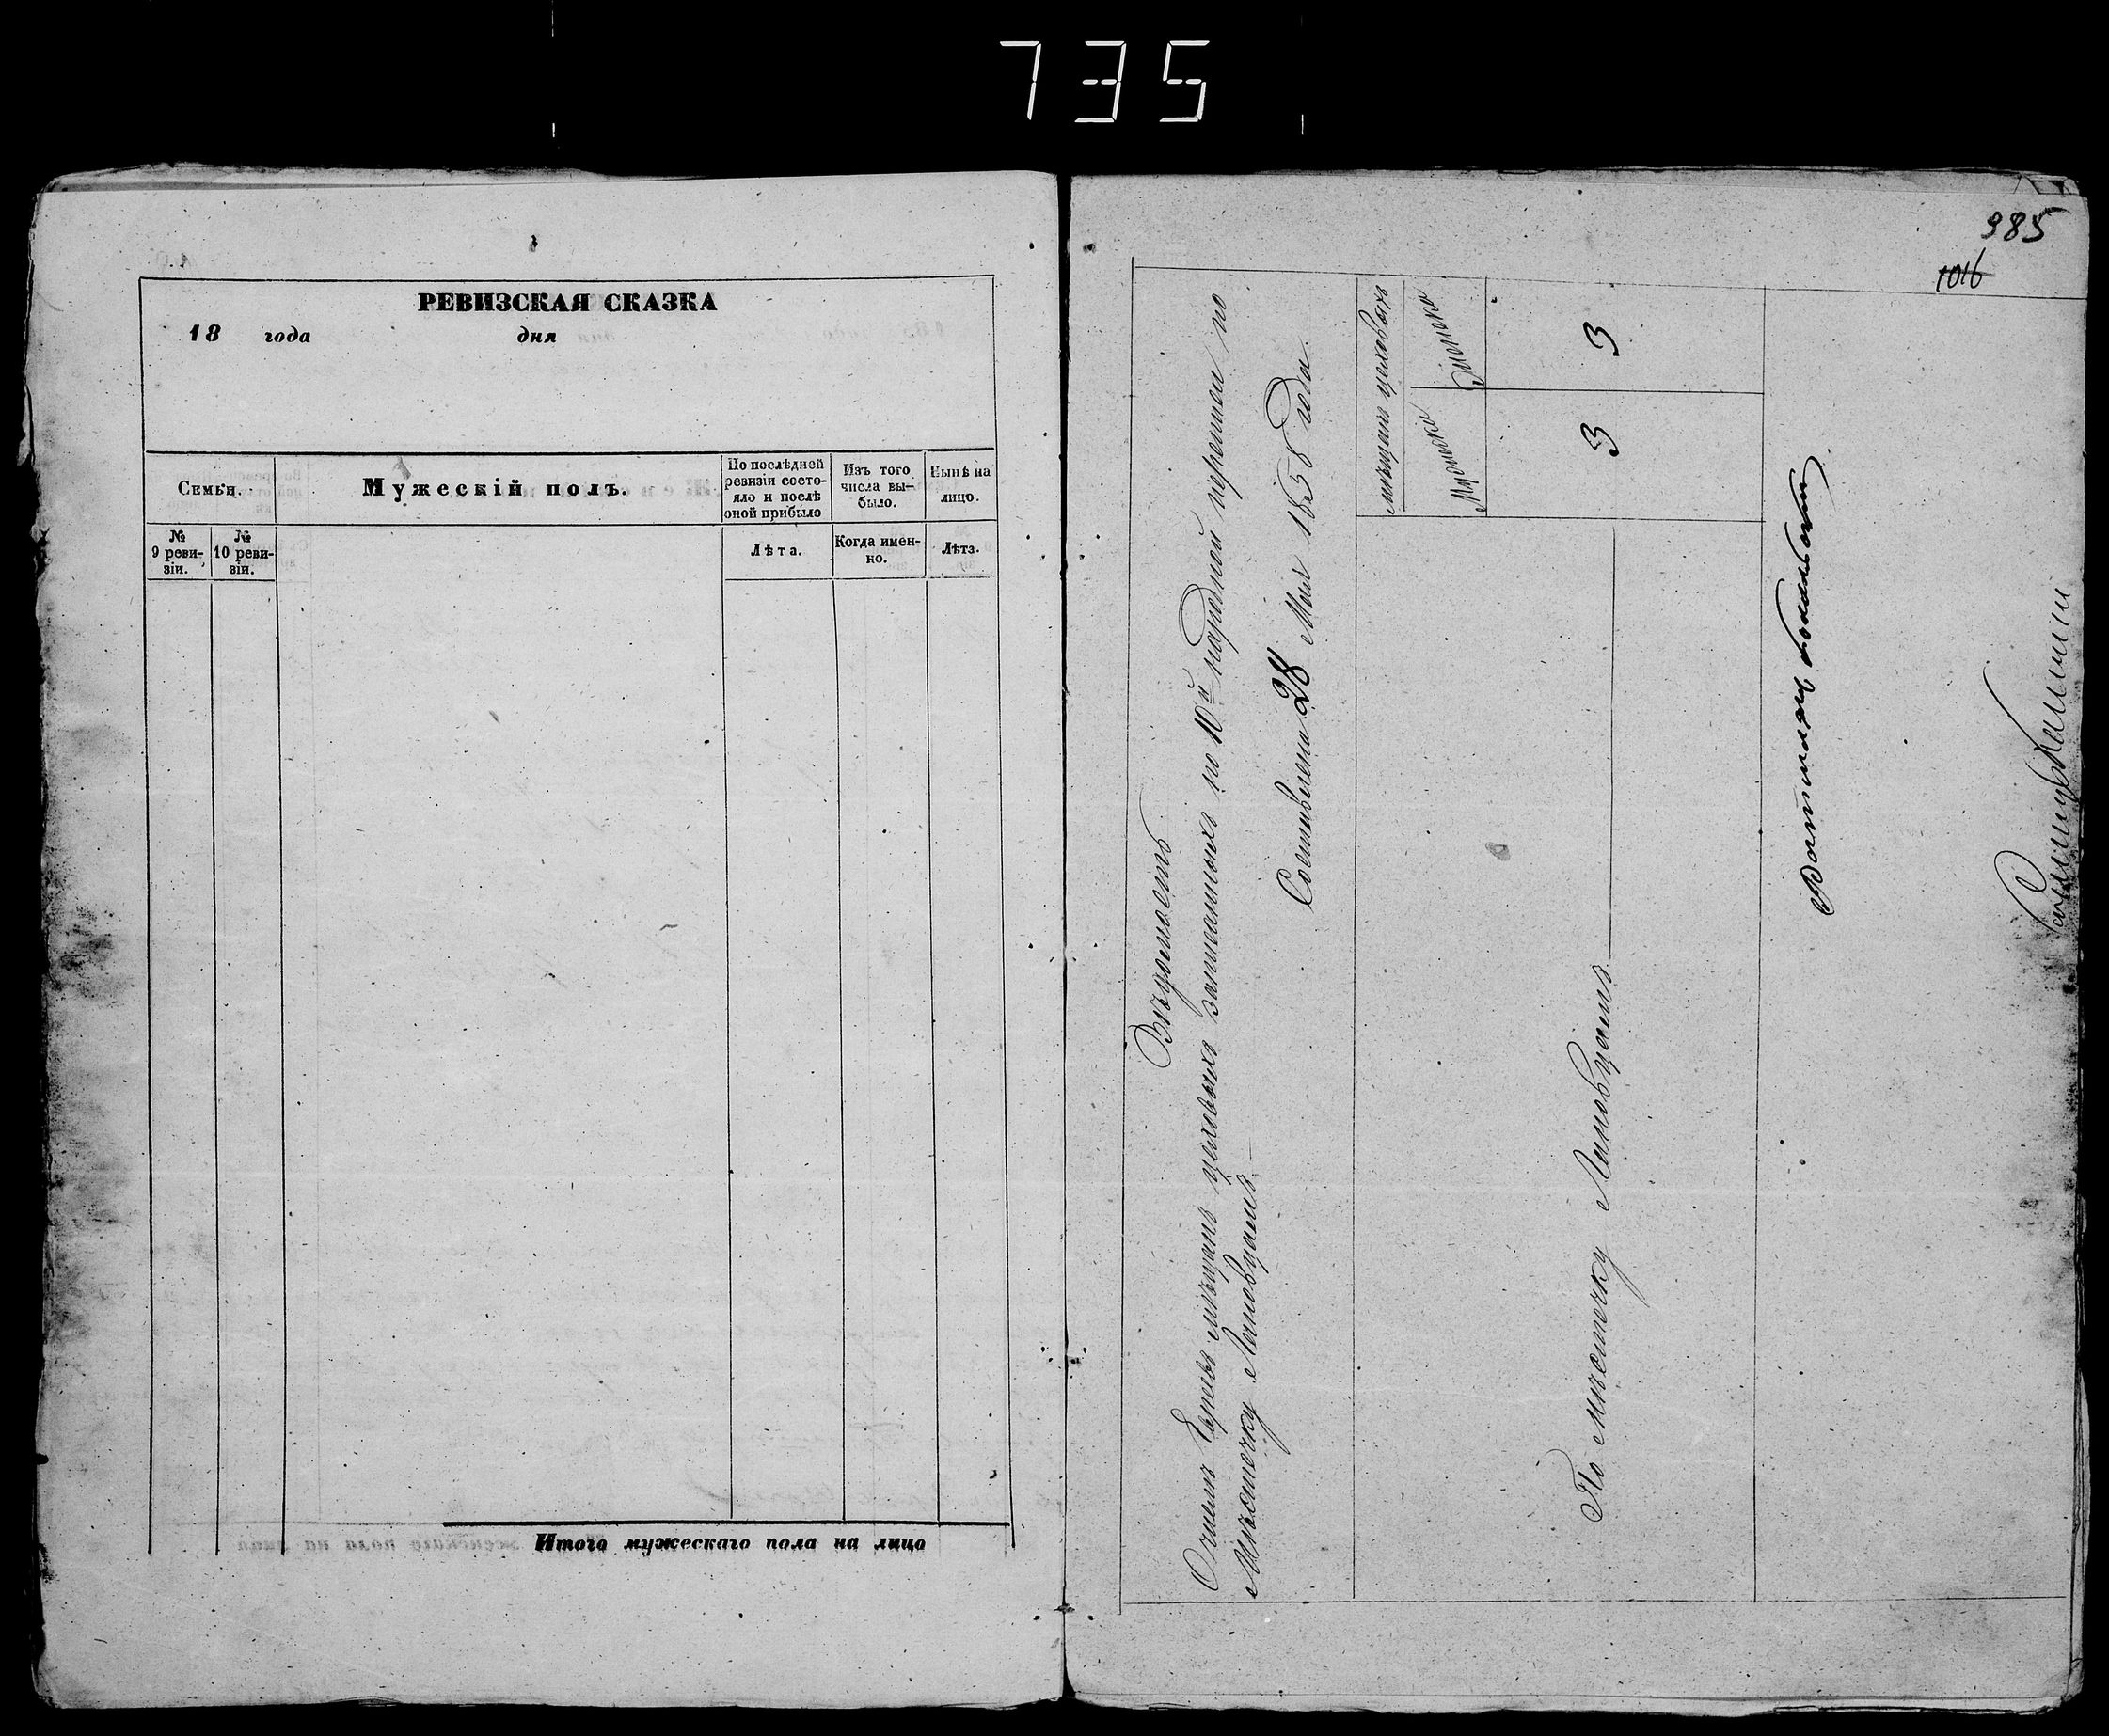 735
РЕВИЗСКАЯ СКАЗКА
18 года дня
Семьи.
Мужескій полъ.
По послѣдней ревизіи состо-
яло и послѣ
оной прибыло
Изъ того
числа вы-
было.
Нынѣ на
лицо.
№
9 реви-
зіи.
№
10 реви-
зіи.
Лѣта.
Когда имен-
но.
Лѣта.
Итого мужескаго пола на лицо
985
1016
Вѣдомость
О числѣ мѣщанъ цеховыхъ записанныхъ по 10й народной переписи по
Мѣстечку Лановцамъ.
Составлена 28 Мая 1858 года.
мѣщанъ цеховыхъ
Мужеска
Женска
По мѣстечку Лановцамъ
3
3